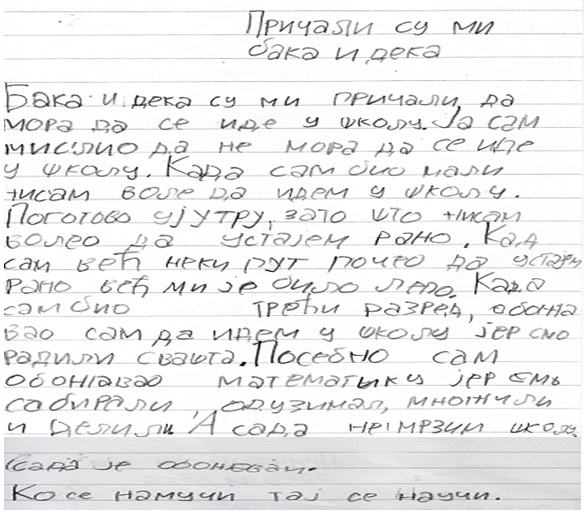 Причали су ми
бака и дека
Бака и дека су ми причали, да
мора да се иде у школу. Ја сам
мислио да не мора да се иде
у школу. Када сам био мали
нисам воле да идем у школу.
Поготово ујутру, зато што нисам
волео да устајем рано. Кад
сам већ неки пут почео да устајем
рано већ ми је било лепо. Када
сам био трећи разред, обожа
вао сам да идем у школу јер смо
радили свашта. Посебно сам
обожавао математику јер смь
сабирали, одузимал, множили
и делили. А сада не мрзим школу.
Сада је обожевам.
Ко се намучи тај се научи.